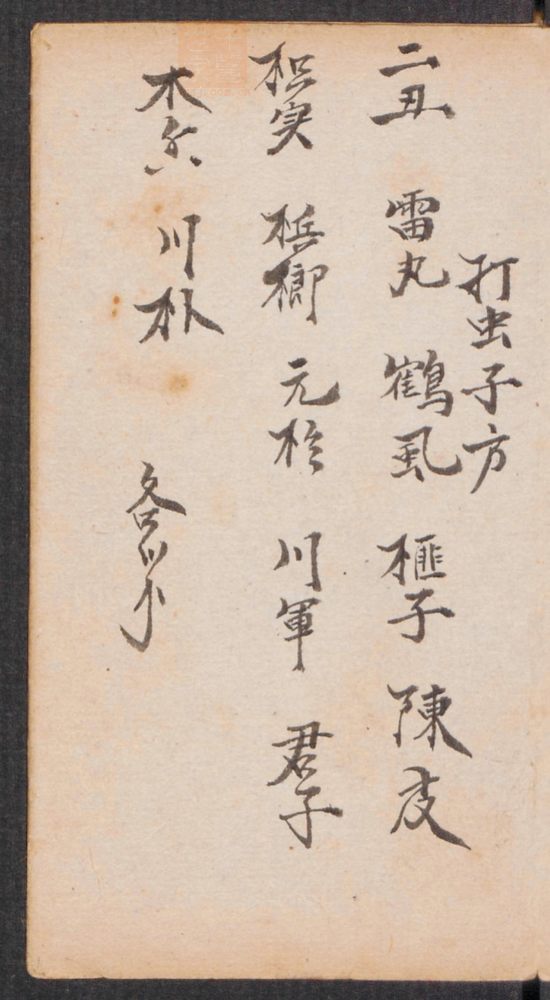 打虫子方
二丑 雷丸 鶴虱 榧子 陳皮
枳实 梹榔 元柃 川軍 君子
木香 川朴 各等